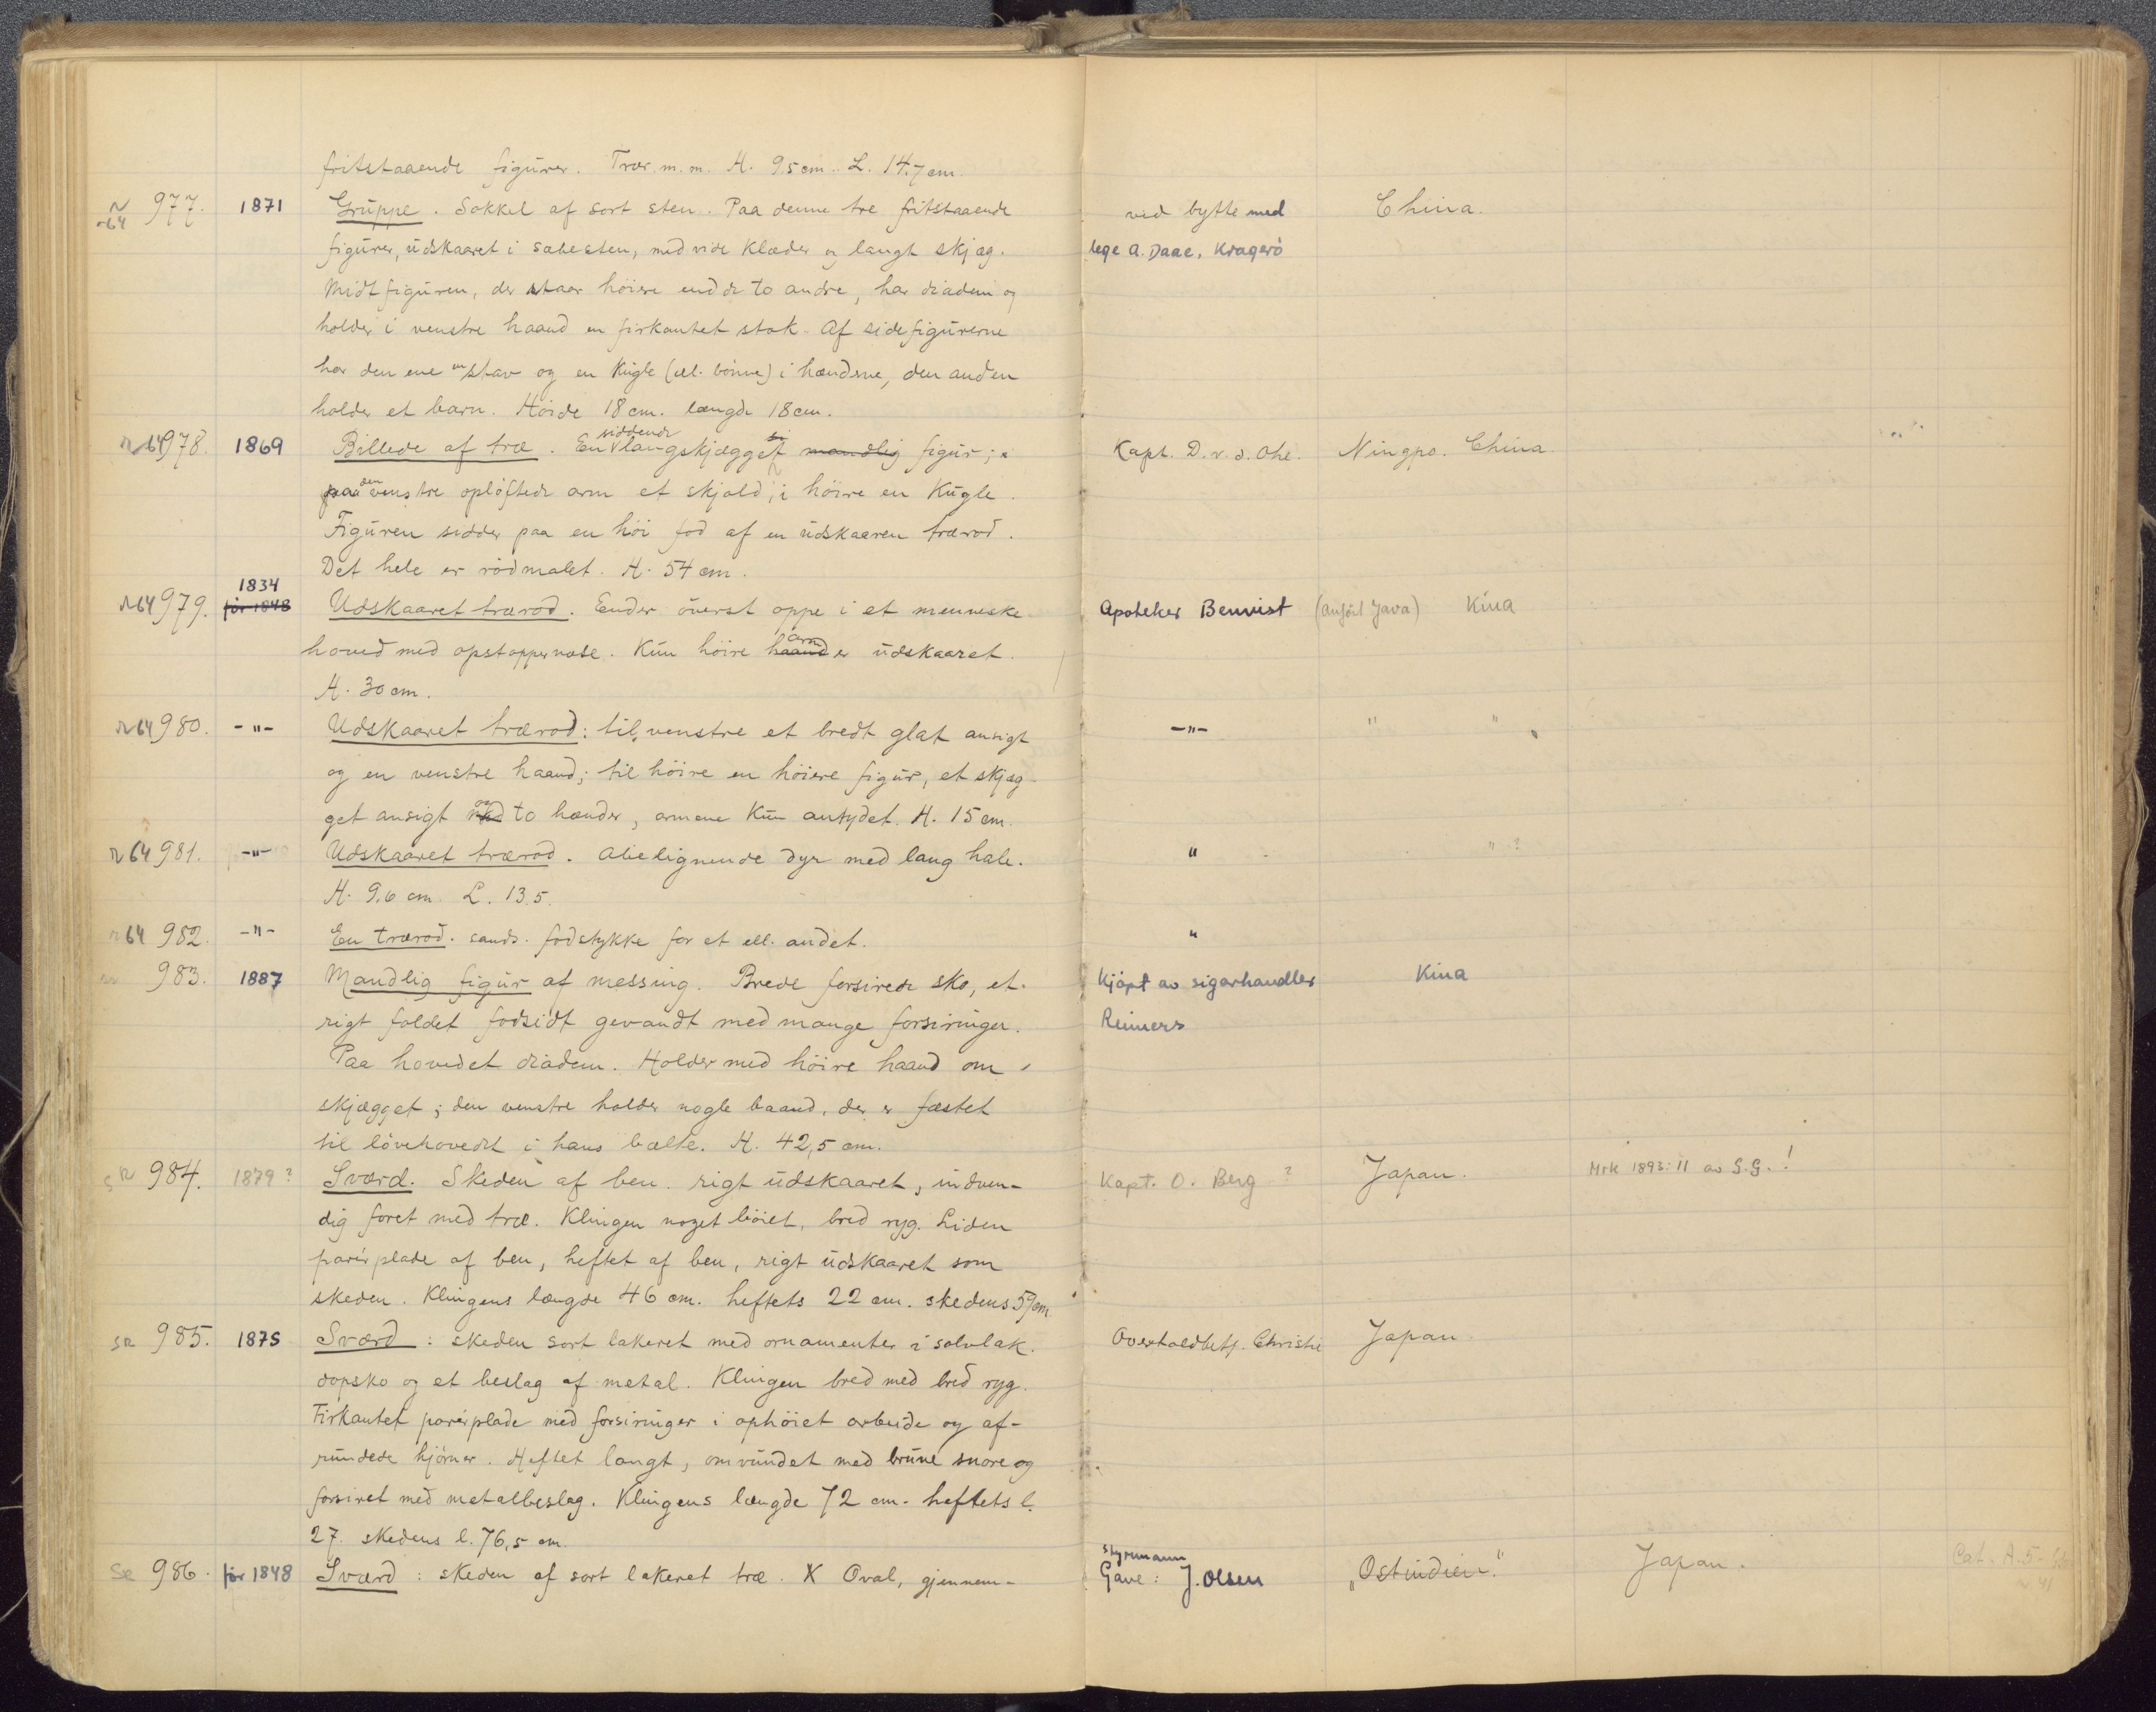 fritstaaende figurer. Træ m.m. H. 9.5 cm. L. 14.7 cm.
977. 1871 Gruppe. Sokkel af sort sten. Paa denne tre fritstaaende ved bytte med China.
figurer, udskaaret i sæbesten, med vide klæder og langt skjæg. lege A. Daae, Kragerö
Midtfiguren, der staar höiere end de to andre, har diadem og
holder i venstre haand en firkantet stok. Af sidefigurerne
har den ene en stav og en Kugle (ell. bönne) i hænderne, den anden
holder et barn. Höide 18 cm. længde 18 cm.
siddende
978. 1869 Billede af træ. En langskjægget mandlig figur; Kapt. D. v. d. Ohe. Ningpo. China.
paa den venstre oplöftede arm et skjold, i höire en Kugle.
Figuren sidder paa en höi fod af en udskaaren trærod.
Det hele er rödmalet. H. 54 cm.
1834
64 979. för 1848 Udskaaret trærod. Ender överst oppe i et menneske- Apoteker Bennist (anfört Java) Kina
arm
hoved med opstoppernæse. Kun höire haand er udskaaret.
H. 30 cm.
64 980. -"- Udskaaret trærod: til venstre et bredt glat ansigt -"- " "
og en venstre haand; til höire en höiere figur, et skjæg-
get ansigt med og to hænder, armene Kun antydet. H. 15 cm.
64 981. -"- Udskaaret trærod. Abelignende dyr med lang hale. " " ?
H. 9.6 cm. L. 13.5.
64 982. -"- En trærod. sands. fodstykke for et ell. andet. "
983. 1887 Mandlig figur af messing. Brede forsirede sko, et Kjöpt av sigarhandler Kina
rigt foldet fodsidt gevandt med mange forsiringer. Reimers
Paa hovedet diadem. Holder med höire haand om
skjægget; den venstre holder nogle baand, der er fæstet
til lövehovedet i hans bælte. H. 42,5 cm.
984. 1879? Sværd. Skeden af ben. rigt udskaaret, indven- Kapt. O. Berg ? Japan. Mrk 1893:11 av G.G.!
dig foret med træ. Klingen noget böiet, bred ryg. Liden
parérplade af ben, heftet af ben, rigt udskaaret som
skeden. Klingens længde 46 cm. heftets 22 cm. skedens 59 cm.
985. 1875 Sværd: skeden sort lakeret med ornamenter i solvlak. Overtoldbetj. Christie Japan.
dopsko og et beslag af metal. Klingen bred med bred ryg.
Firkantet parérplade med forsiringer i ophöiet arbeide og af-
rundede hjörner. Heftet langt, omvundet med brune snore og
forsiret med metalbeslag. Klingens længde 72 cm. heftets l.
27. skedens l. 76,5 cm.
styrmann
986. för 1848 Sværd: skeden af sort lakeret træ. X Oval, gjennem- Gave: J. Olsen „Ostindien". Japan.